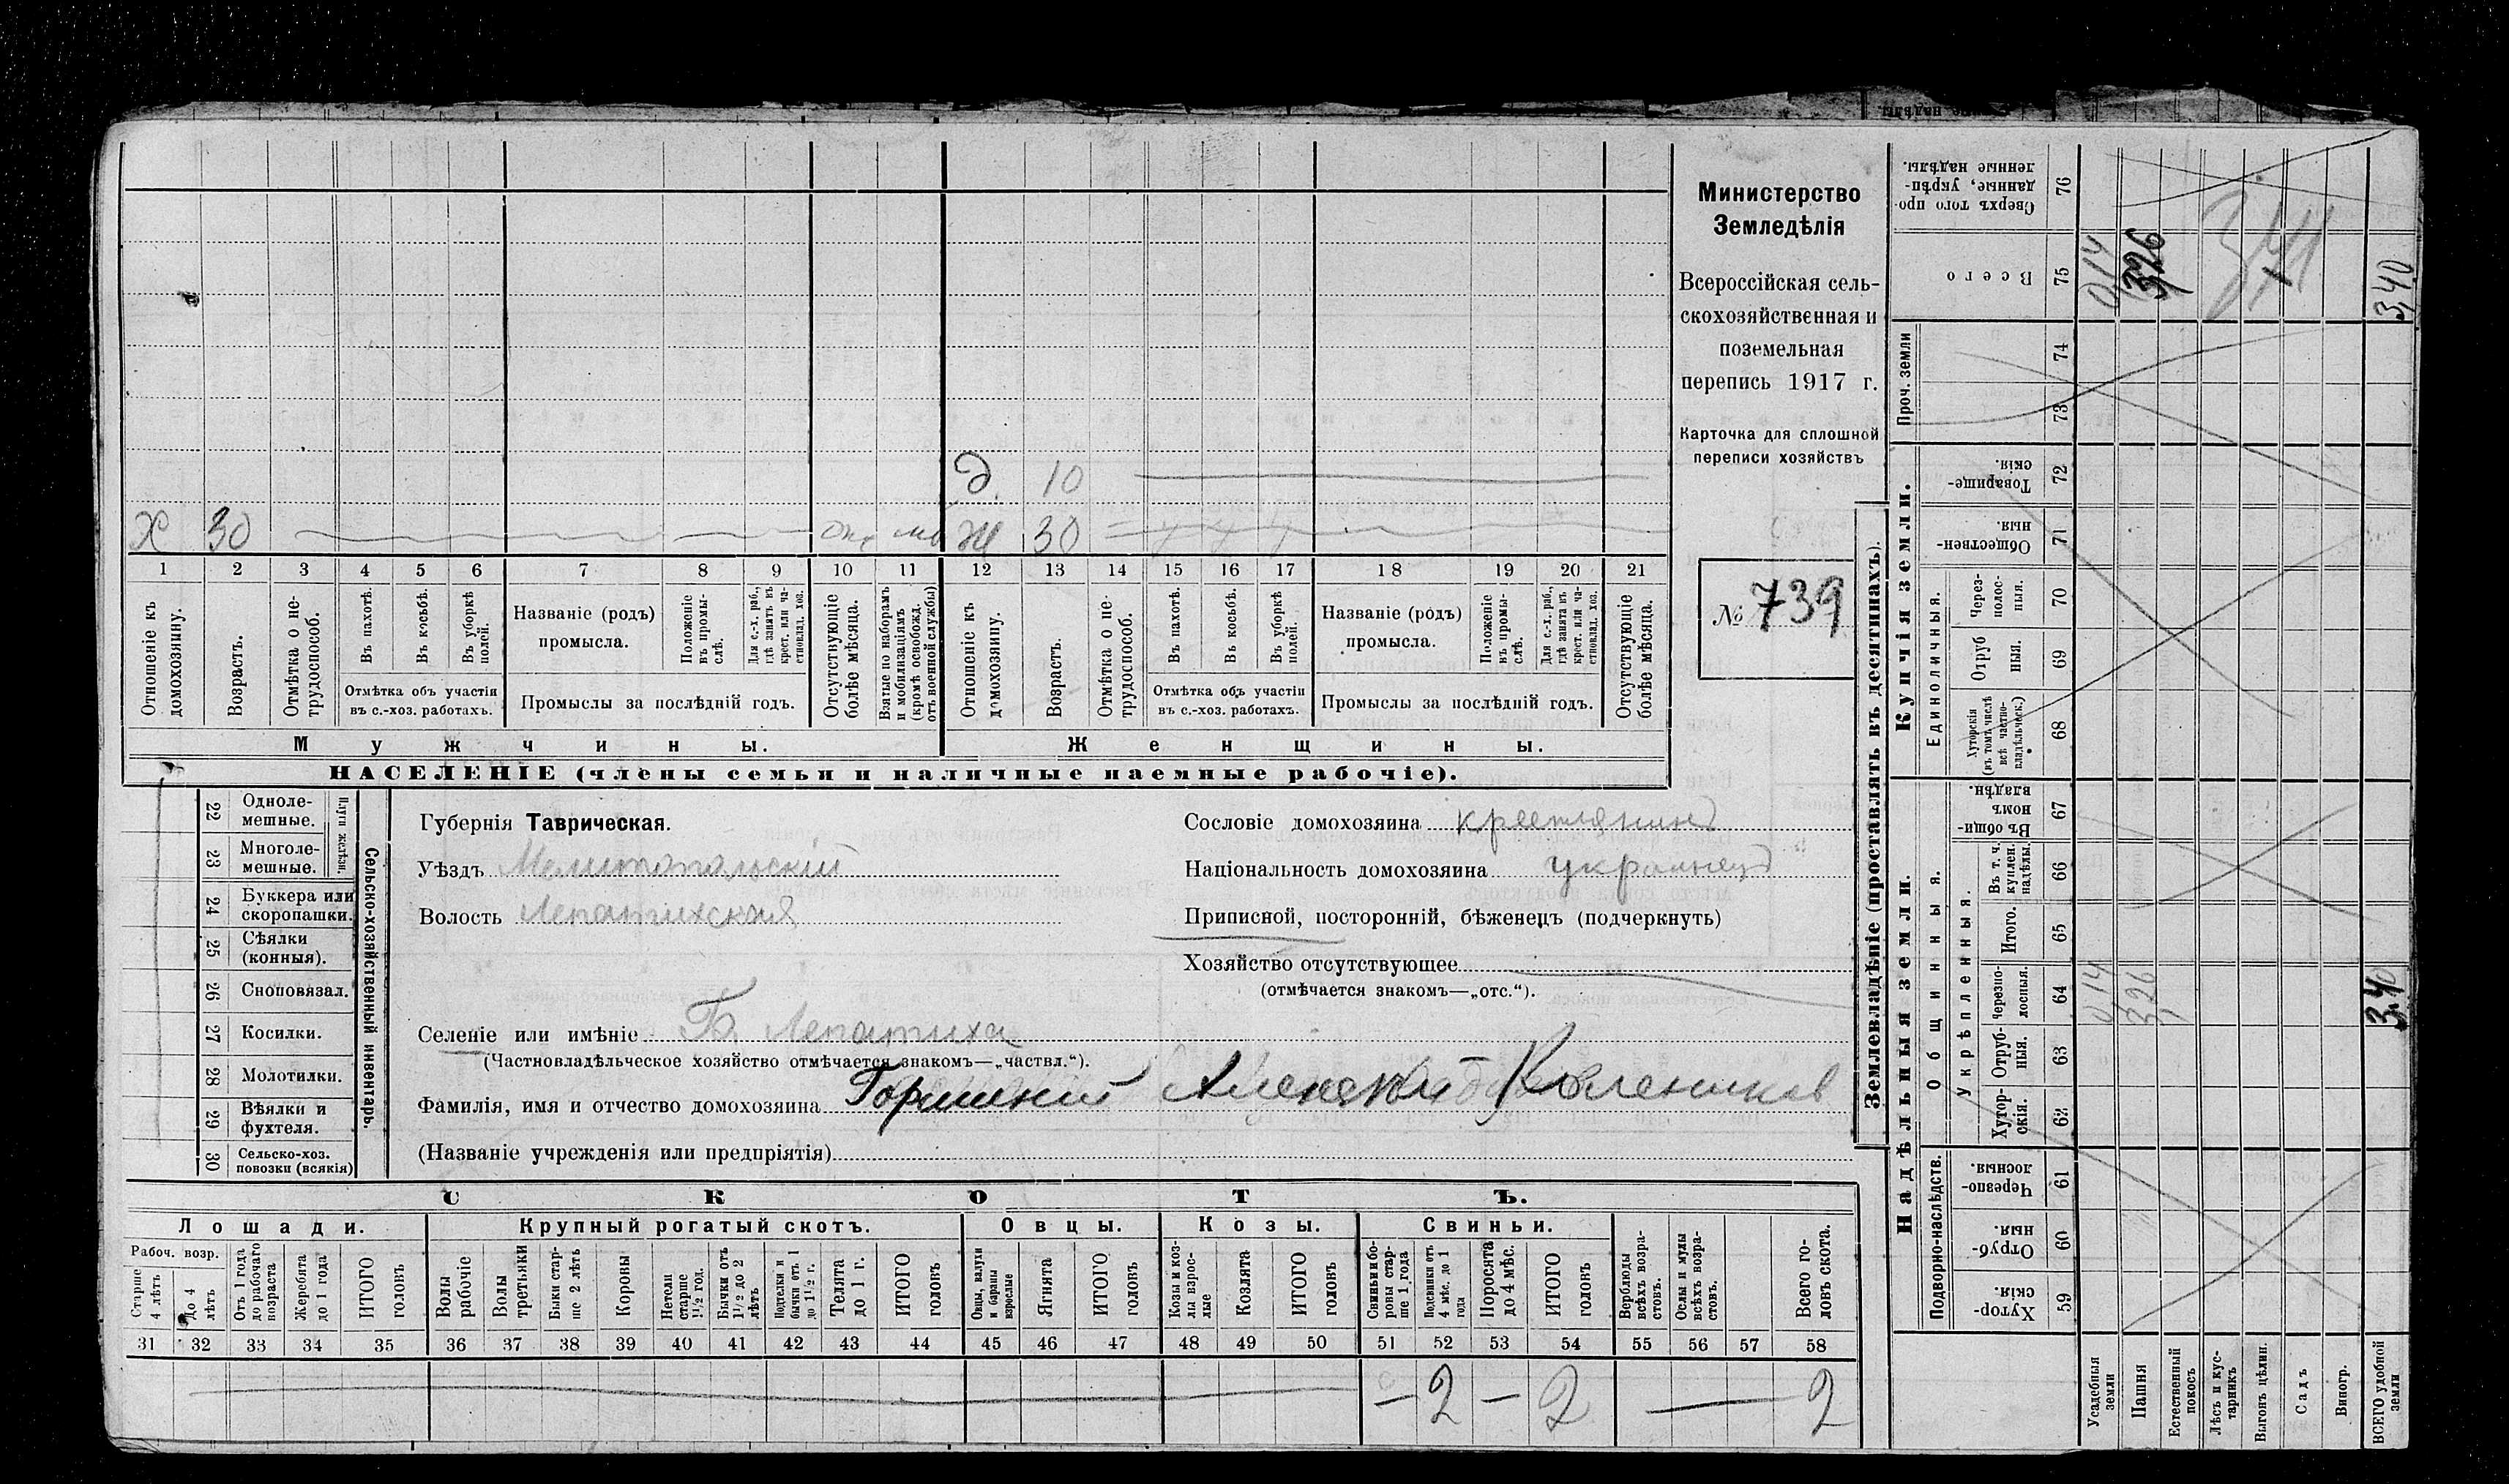 Министерство
Земледѣлія
Всероссійская сель-
скохозяйственная и
поземельная
перепись 1917 г.
Карточка для сплошной
переписи хозяйствъ
№ 739
д. 10
Х 30 Ж 30
1 2 3 4 5 6 7 8 9 10 11 12 13 14 15 16 17 18 19 20 21
Отношеніе къ домохозяину.
Возрастъ.
Отмѣтка о не-трудоспособ.
Въ пахотѣ.
Въ косьбѣ.
Въ уборкѣ полей.
Отмѣтка объ участіи въ с.-хоз. работахъ.
Названіе (родъ) промысла.
Положеніе въ промы-слѣ.
Для с.-х. раб., гдѣ занятъ въ крест. или ча-стновлад. хоз.
Промыслы за послѣдній годъ.
Отсутствующіе болѣе мѣсяца.
Взятые по наборамъ и мобилизаціямъ (кромѣ освобожд. отъ военной службы)
Отношеніе къ домохозяину.
Возрастъ.
Отмѣтка о не-трудоспособ.
Въ пахотѣ.
Въ косьбѣ.
Въ уборкѣ полей.
Отмѣтка объ участіи въ с.-хоз. работахъ.
Названіе (родъ) промысла.
Положеніе въ промы-слѣ.
Для с.-х. раб., гдѣ занятъ въ крест. или ча-стновлад. хоз.
Промыслы за послѣдній годъ.
Отсутствующіе болѣе мѣсяца.
Мужчины. Женщины.
НАСЕЛЕНІЕ (члены семьи и наличные наемные рабочіе).
22 Одноле-мешные.
23 Многоле-мешные.
Плуги желѣзн.
24 Буккера или скоропашки.
25 Сѣялки (конныя).
26 Сноповязал.
27 Косилки.
28 Молотилки.
29 Вѣялки и фухтеля.
30 Сельско-хоз. повозки (всякія)
Сельско-хозяйственный инвентарь.
Губернія Таврическая.
Уѣздъ Мелитопольскій
Волость Лепатихская
Сословіе домохозяина крестьянинъ
Національность домохозяина украинецъ
Приписной, посторонній, бѣженецъ (подчеркнуть)
Хозяйство отсутствующее
(отмѣчается знакомъ—„отс.“).
Селеніе или имѣніе Б. Лепатиха
(Частновладѣльческое хозяйство отмѣчается знакомъ—„частвл.“).
Фамилія, имя и отчество домохозяина Алексѣй
(Названіе учрежденія или предпріятія)
СКОТЪ.
Лошади. Крупный рогатый скотъ. Овцы. Козы. Свиньи.
Рабоч. возр.
Старше 4 лѣтъ
До 4 лѣтъ
Отъ 1 года до рабочаго возраста
Жеребята до 1 года
ИТОГО головъ
Волы рабочіе
Волы третьяки
Быки стар-ше 2 лѣтъ
Коровы
Нетели старше 1½ год.
Бычки отъ 1½ до 2 лѣтъ
Подтелки и бычки отъ 1 до 1½ г.
Телята до 1 г.
ИТОГО головъ
Овцы, валухи и бараны взрослые
Ягнята
ИТОГО головъ
Козы и коз-лы взрос-лые
Козлята
ИТОГО головъ
Свиньи и бо-ровы стар-ше 1 года
Подсвинки отъ 4 мѣс. до 1 года
Поросята до 4 мѣс.
ИТОГО головъ
Верблюды всѣхъ возра-стовъ.
Ослы и мулы всѣхъ возра-стовъ.
Всего го-ловъ скота.
31 32 33 34 35 36 37 38 39 40 41 42 43 44 45 46 47 48 49 50 51 52 53 54 55 56 57 58
— 2 — 2 — 2
Землевладѣніе (проставлять въ десятинахъ).
Надѣльныя земли. Купчія земли.
Сверхъ того про-данные, укрѣп-ленные надѣлы. 76
Всего 75 0,14 3,26 3,40
Проч. земли 74 73
Товарище-скія. 72
Обществен-ныя 71
Единоличныя.
Через-полос-ныя. 70
Отруб ныя. 69
Хуторскія (въ томъ числѣ всѣ частно-владѣльческ.) 68
Общинныя.
Въ общи-номъ владѣн. 67
Укрѣпленныя.
Въ т. ч. куплен. надѣлы. 66
Итого. 65
Черезпо-лосныя. 64 0,14 3,26 3,40
Отруб-ныя. 63
Хутор-скія. 62
Подворно-наслѣдств.
Черезпо-лосныя. 61
Отруб-ныя. 60
Хутор-скія. 59
Усадебныя земли
Пашня
Естественный покосъ
Лѣсъ и кус-тарникъ
Выгонъ цѣлин.
Садъ
Виногр.
ВСЕГО удобной земли